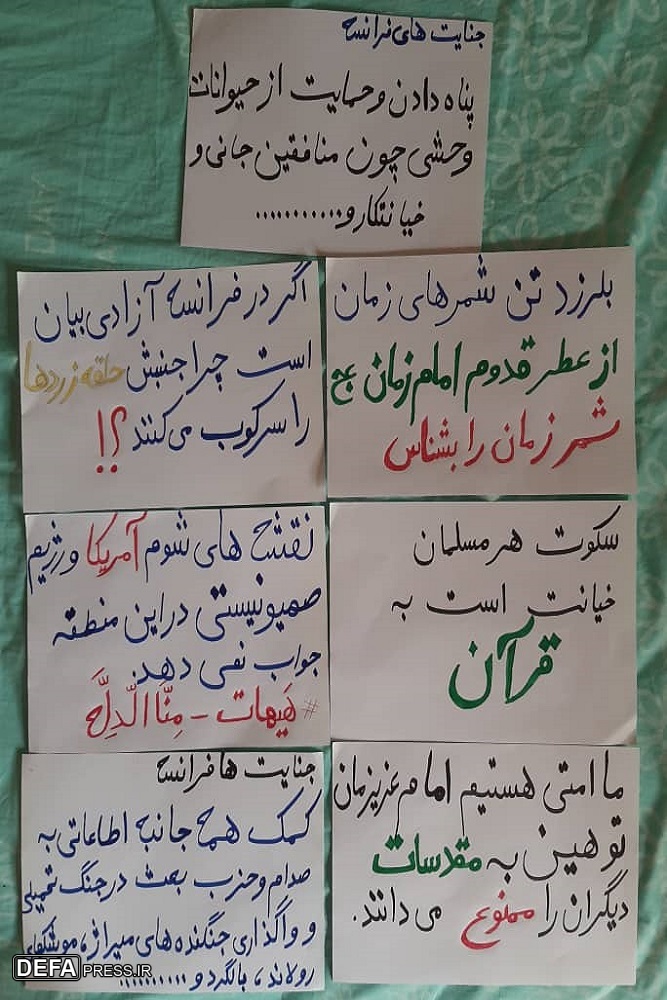 جنایت های فرانسه
پناه دادن و حمایت از حیوانات
وحشی چون منافقین جانی و
خیانتکار و............
بلرزد تن شمرهای زمان
از عطر قدوم امام زمان عج
شمر زمان را بشناس
اگر در فرانسه آزادی بیان
است چرا جنبش جلقه زردها
را سرکوب می کنند؟!
سکوت هر مسلمان
خیانت است به
قرآن
نقشه های شوم آمریکا و رژیم
صهیونیستی در این منطقه
جواب نمی دهد.
#هَیهات - مِنّا الذِلَّه
ما امتی هستیم امام عزیزمان
توهین به مقدسات
دیگران را ممنوع می دانند.
جنایت ها فرانسه
کمک همه جانبه اطاعاتی به
صدام و حزب بعث در جنگ تحمیلی
و واگذاری جنگنده های میراژ، موشکهای
رولاند، بالگرد و..........
DEFAPRESS.IR